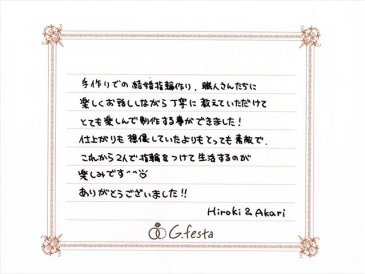 手作りでの結婚指輪作り、職人さんたちに
楽しくお話ししながら丁寧に教えていただけて
とても楽しんで制作する事ができました!
仕上がりも想像していたよりもとっても素敵で、
これから2人で指輪をつけて生活するのが
楽しみです^^☺
ありがとうございました!!
Hiroki & Akari
G.festa